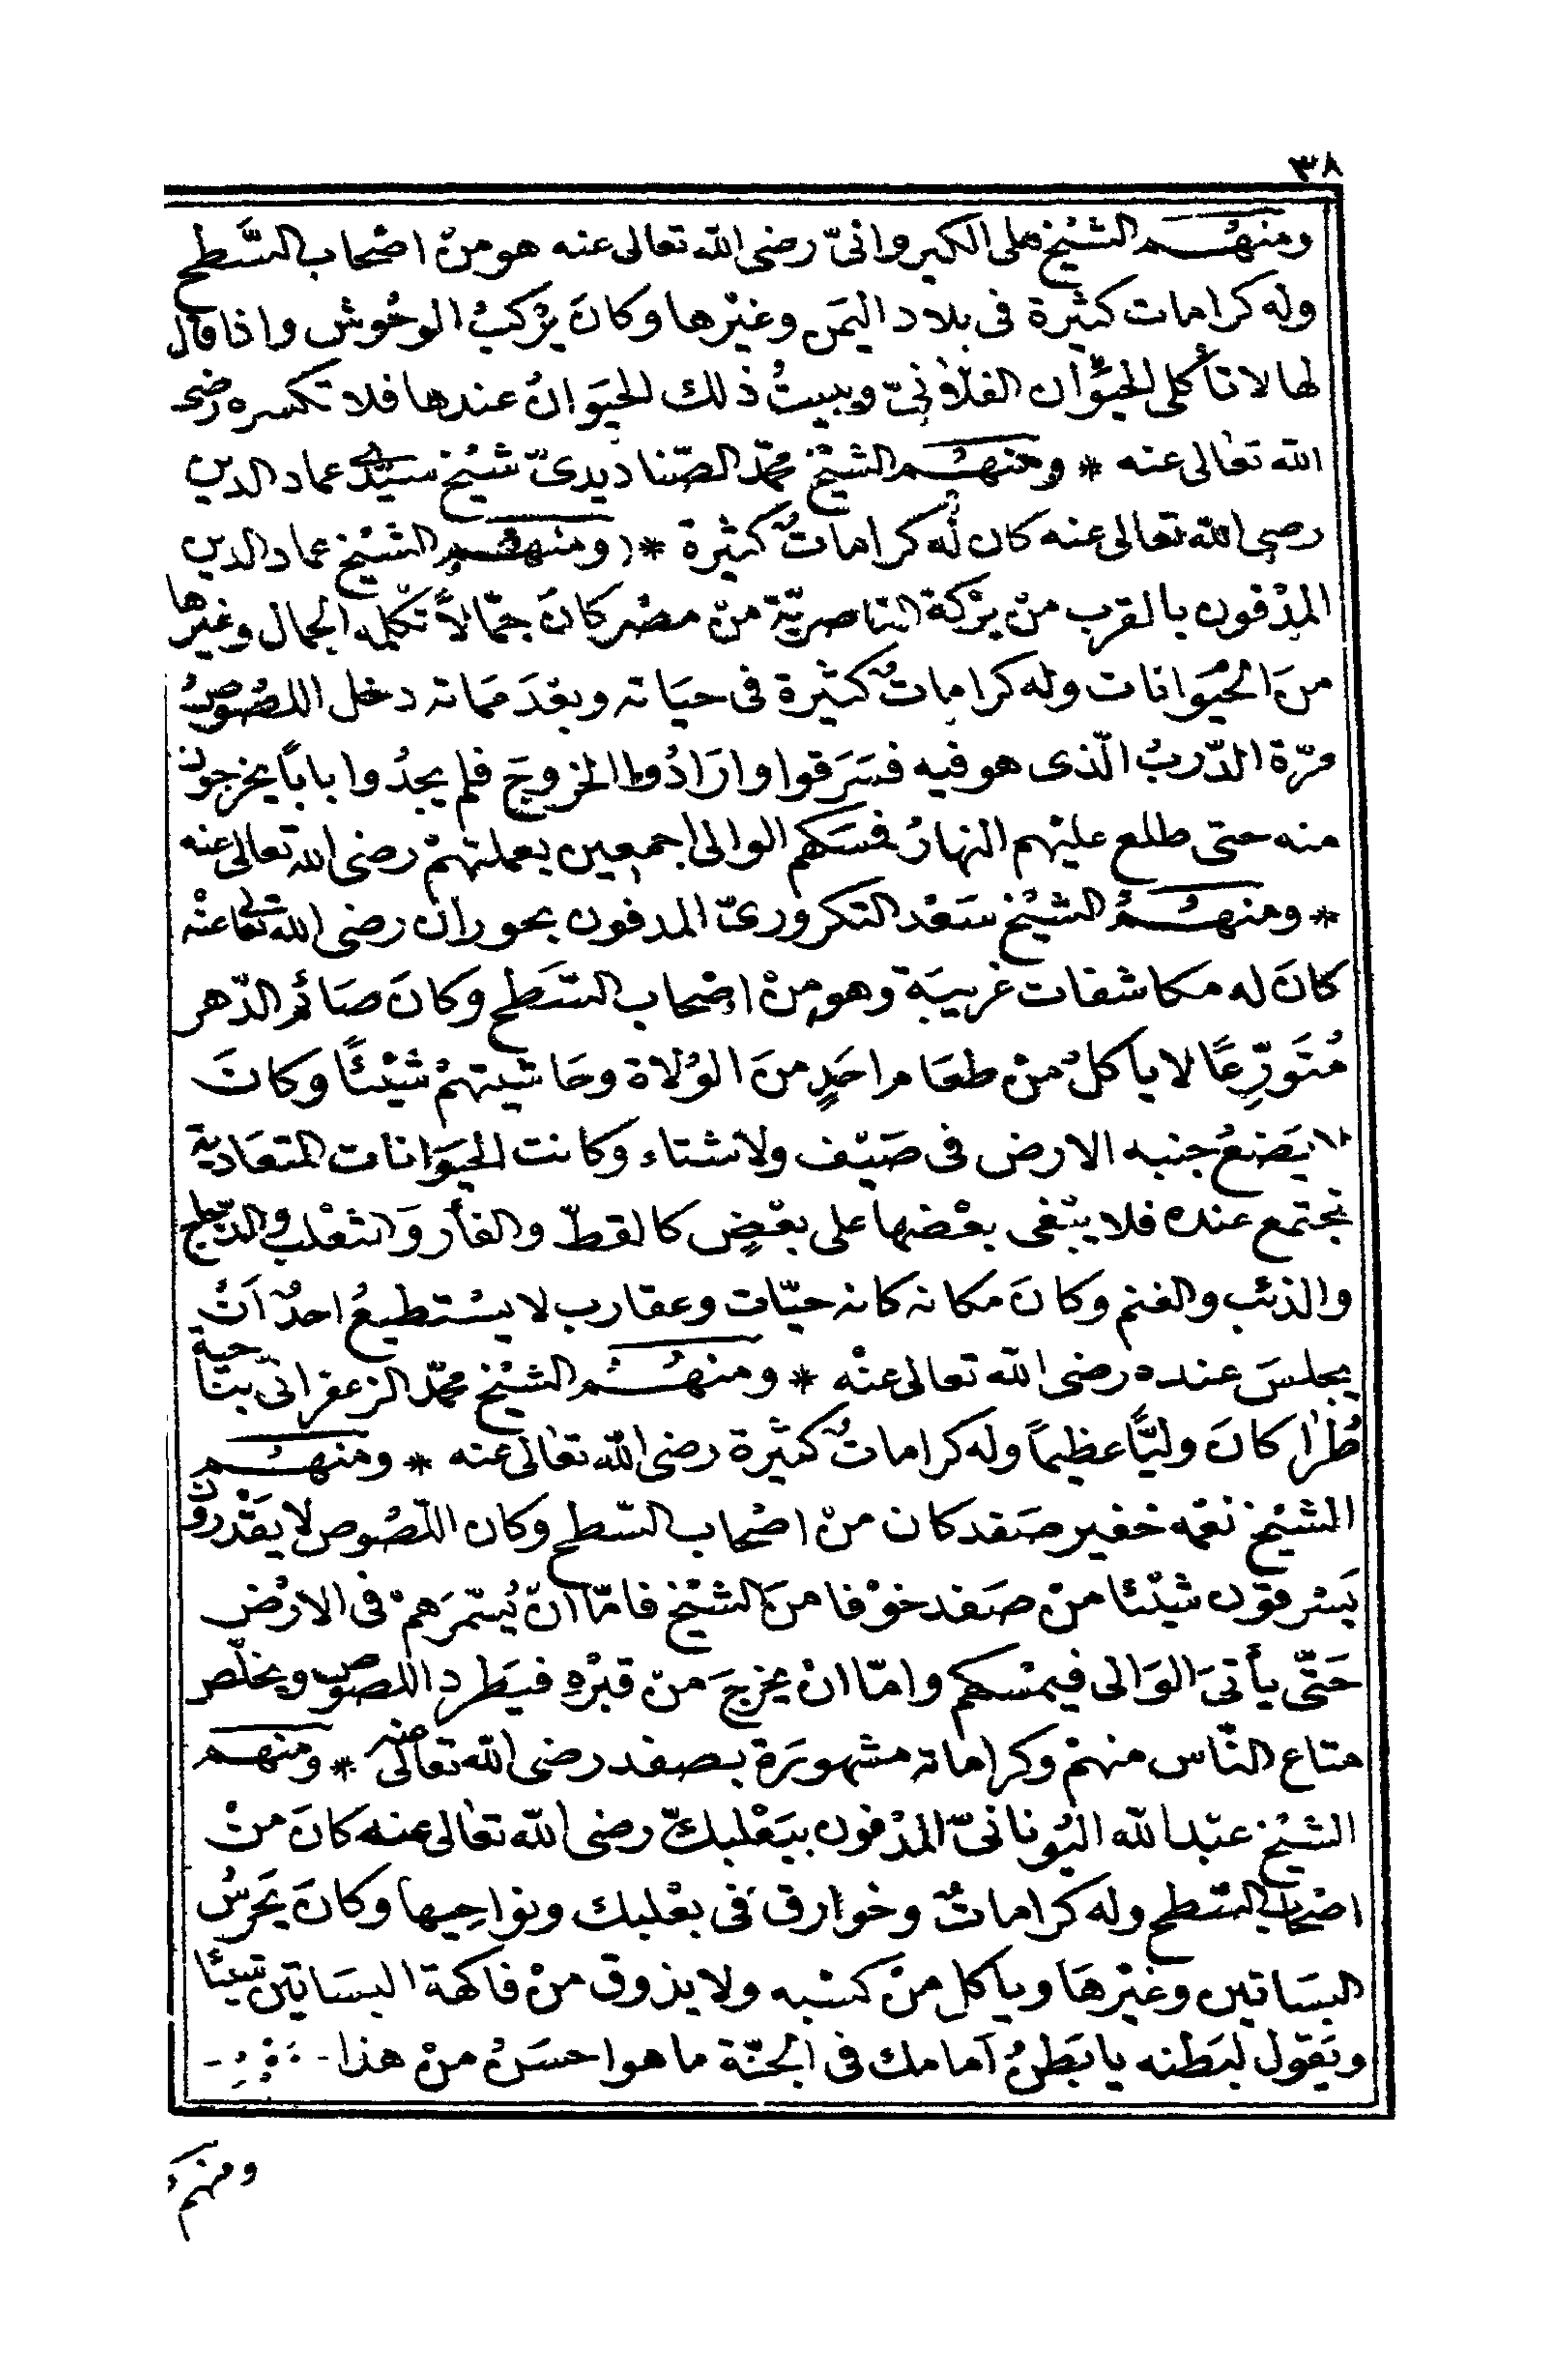 ٣٨
ومنهم الشيخ على الكيروانىّ رضى الله تعالى عنه هو من اصحاب السَّطح
وله كرامات كثيرة فى بلاد اليمَن وغيْرها وكانَ يرْكبُ الوحُوش واذا قال
لها لا تأكلى الحيَوان الفلاْنىّ ويبيتُ ذلك الحيَوانُ عندها فلا تكسره رضى
الله تعَالى عنه * ومنهُم الشيْخ محمّد الصّناديدىّ شيْخ سيّدى عماد الدين
رضى الله تعالى عنه كان لُه كراماتٌ كثيرة * (ومنهم الشيْخ عماد الدين
المدْفون بالقرب منْ برْكة الناصريّة منْ مصْر كانَ جمّالاً تكلمه الجمال وغيْرها
منَ الحيَوانات وله كراماتٌ كثيرة فى حيَاته وبعْدَ ممَاته دخل اللصُوصُ
مرّة الدّربُ الّذى هو فيه فسَرَقوا وارَادُوا الخروجَ فلم يجدُوا باباً يخرجون
منه حتى طلع عليْهم النهارُ فمسَكهم الوالى اجمعين بعملتهمْ رضى الله تعالى عنه
* ومنهُمُ الشيْخ سَعْد التكرورىّ المدفون بحوران رضى الله تعالى عنْه
كانَ له مكاشفات غريبَة وهو منْ اصْحاب السَّطح وكانَ صَائم الدّهر
مُتَورِّعًا لا ياكلُ منْ طعَام احَدٍ منَ الوُلاة وحَاشيتهمْ شيْئًا وكانَ
لا يَضعُ جنبه الارض فى صَيْف ولا شتاء وكانت الحيَوانات المتعَادية
تجتمع عنده فلا يبْغى بعْضها على بعْضٍ كالقطّ والفأر وَالثعْلب والدّجاج
والذئب والغنم وكانَ مكانه كانه حيّات وعقارب لا يسْتطيعُ احدٌ اَنْ
يجلسَ عنده رضى الله تعالى عنْه * ومنهُم الشيْخ محمّد الزعفرانىّ بناحية
طُرا كانَ وليًّا عظيماً وله كراماتٌ كثيْرة رضى الله تعالى عنه * ومنهُم
الشيْخ نعْمه خفير صَفد كان منْ اصْحاب السّطح وكان اللّصُوص لا يقْدرون
يَسْرقوْن شيْئا منْ صَفد خوْفا منَ الشيْخ فامّا انْ يُسَمّرَهمْ فى الارْض
حَتّى يأتىَ الوَالى فيمْسكهم وامّا انْ يخرجَ منْ قبْرهِ فيَطرد اللصوص ويخلّص
متاع النّاس منهمْ وكراماته مشهورَة بصفد رضى الله تعالى عنه * ومنهم
الشيْخ عبْد الله اليُونانىّ المدْفون ببَعْلبكّ رضى الله تعَالى عنه كانَ منْ
اصْحاب السَّطح وله كراماتٌ وخوارق فى بعْلبك ونواحيها وكانَ يَحرسُ
البسَاتين وغيْرهَا وياكل منْ كسْبه ولا يذوق منْ فاكهة البسَاتين شيئًا
ويَقول لبَطنه يا بَطنُ اَمامك فى الجنّة ما هو احسَنُ منْ هذا
ومنهم